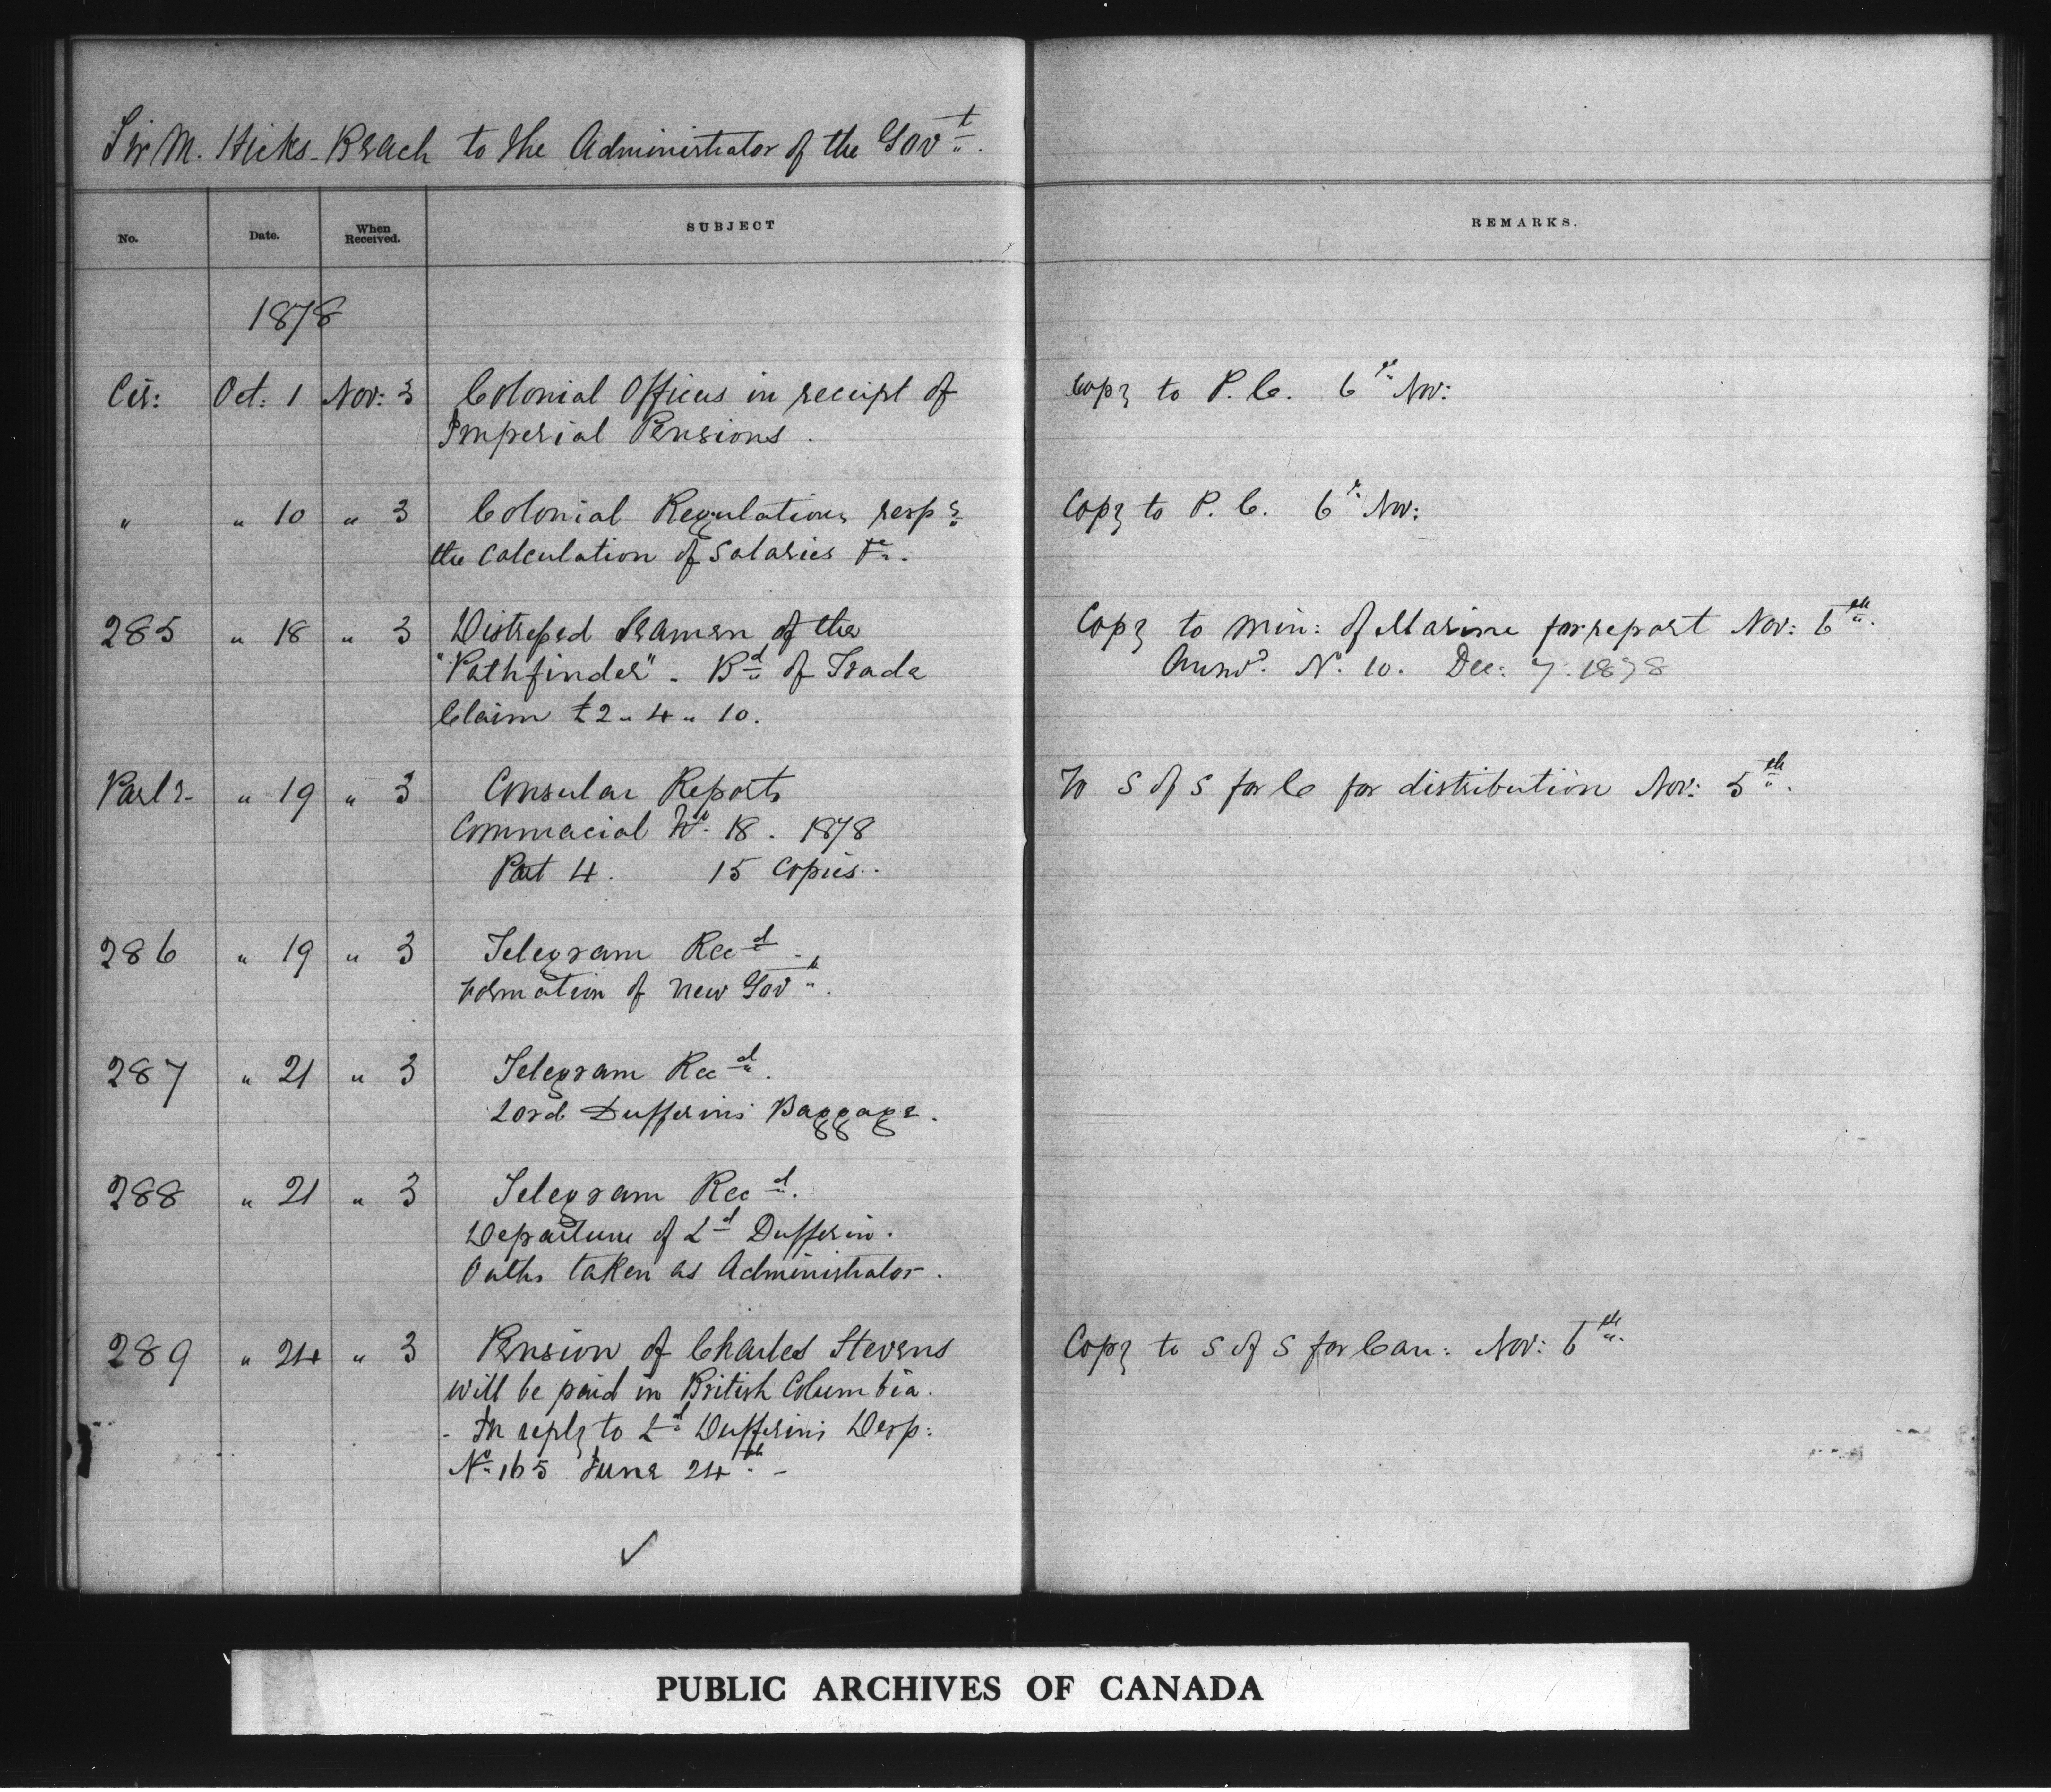 Sir M. Hicks-Beach to the Administrator of the Govt.
No. Date. When Received. SUBJECT REMARKS.
1878
Cir: Oct. 1 Nov: 3 Colonial Officers in receipt of Copy to P. C. 6th Nov:
Imperial Pensions.
" " 10 " 3 Colonial Regulations respg Copy to P. C. 6th Nov:
the calculation of Salaries &c.
285 " 18 " 3 Distressed Seamen of the Copy to Min: of Marine for report Nov: 6th.
"Pathfinder" - Bd of Trade Answd. No. 10. Dec: 7. 1878
Claim £2 " 4 " 10.
Parly " 19 " 3 Consular Reports To S of S for C for distribution Nov: 5th.
Commercial No. 18. 1878
Part 4. 15 copies.
286 " 19 " 3 Telegram Recd.
Formation of New Govt.
287 " 21 " 3 Telegram Recd.
Lord Dufferin's Baggage.
288 " 21 " 3 Telegram Recd.
Departure of Ld Dufferin.
Oaths taken as Administrator.
289 " 24 " 3 Pension of Charles Stevens Copy to S of S for Can: Nov: 6th.
will be paid in British Columbia.
- In reply to Ld Dufferin's Desp:
No. 165 June 24th -
PUBLIC ARCHIVES OF CANADA